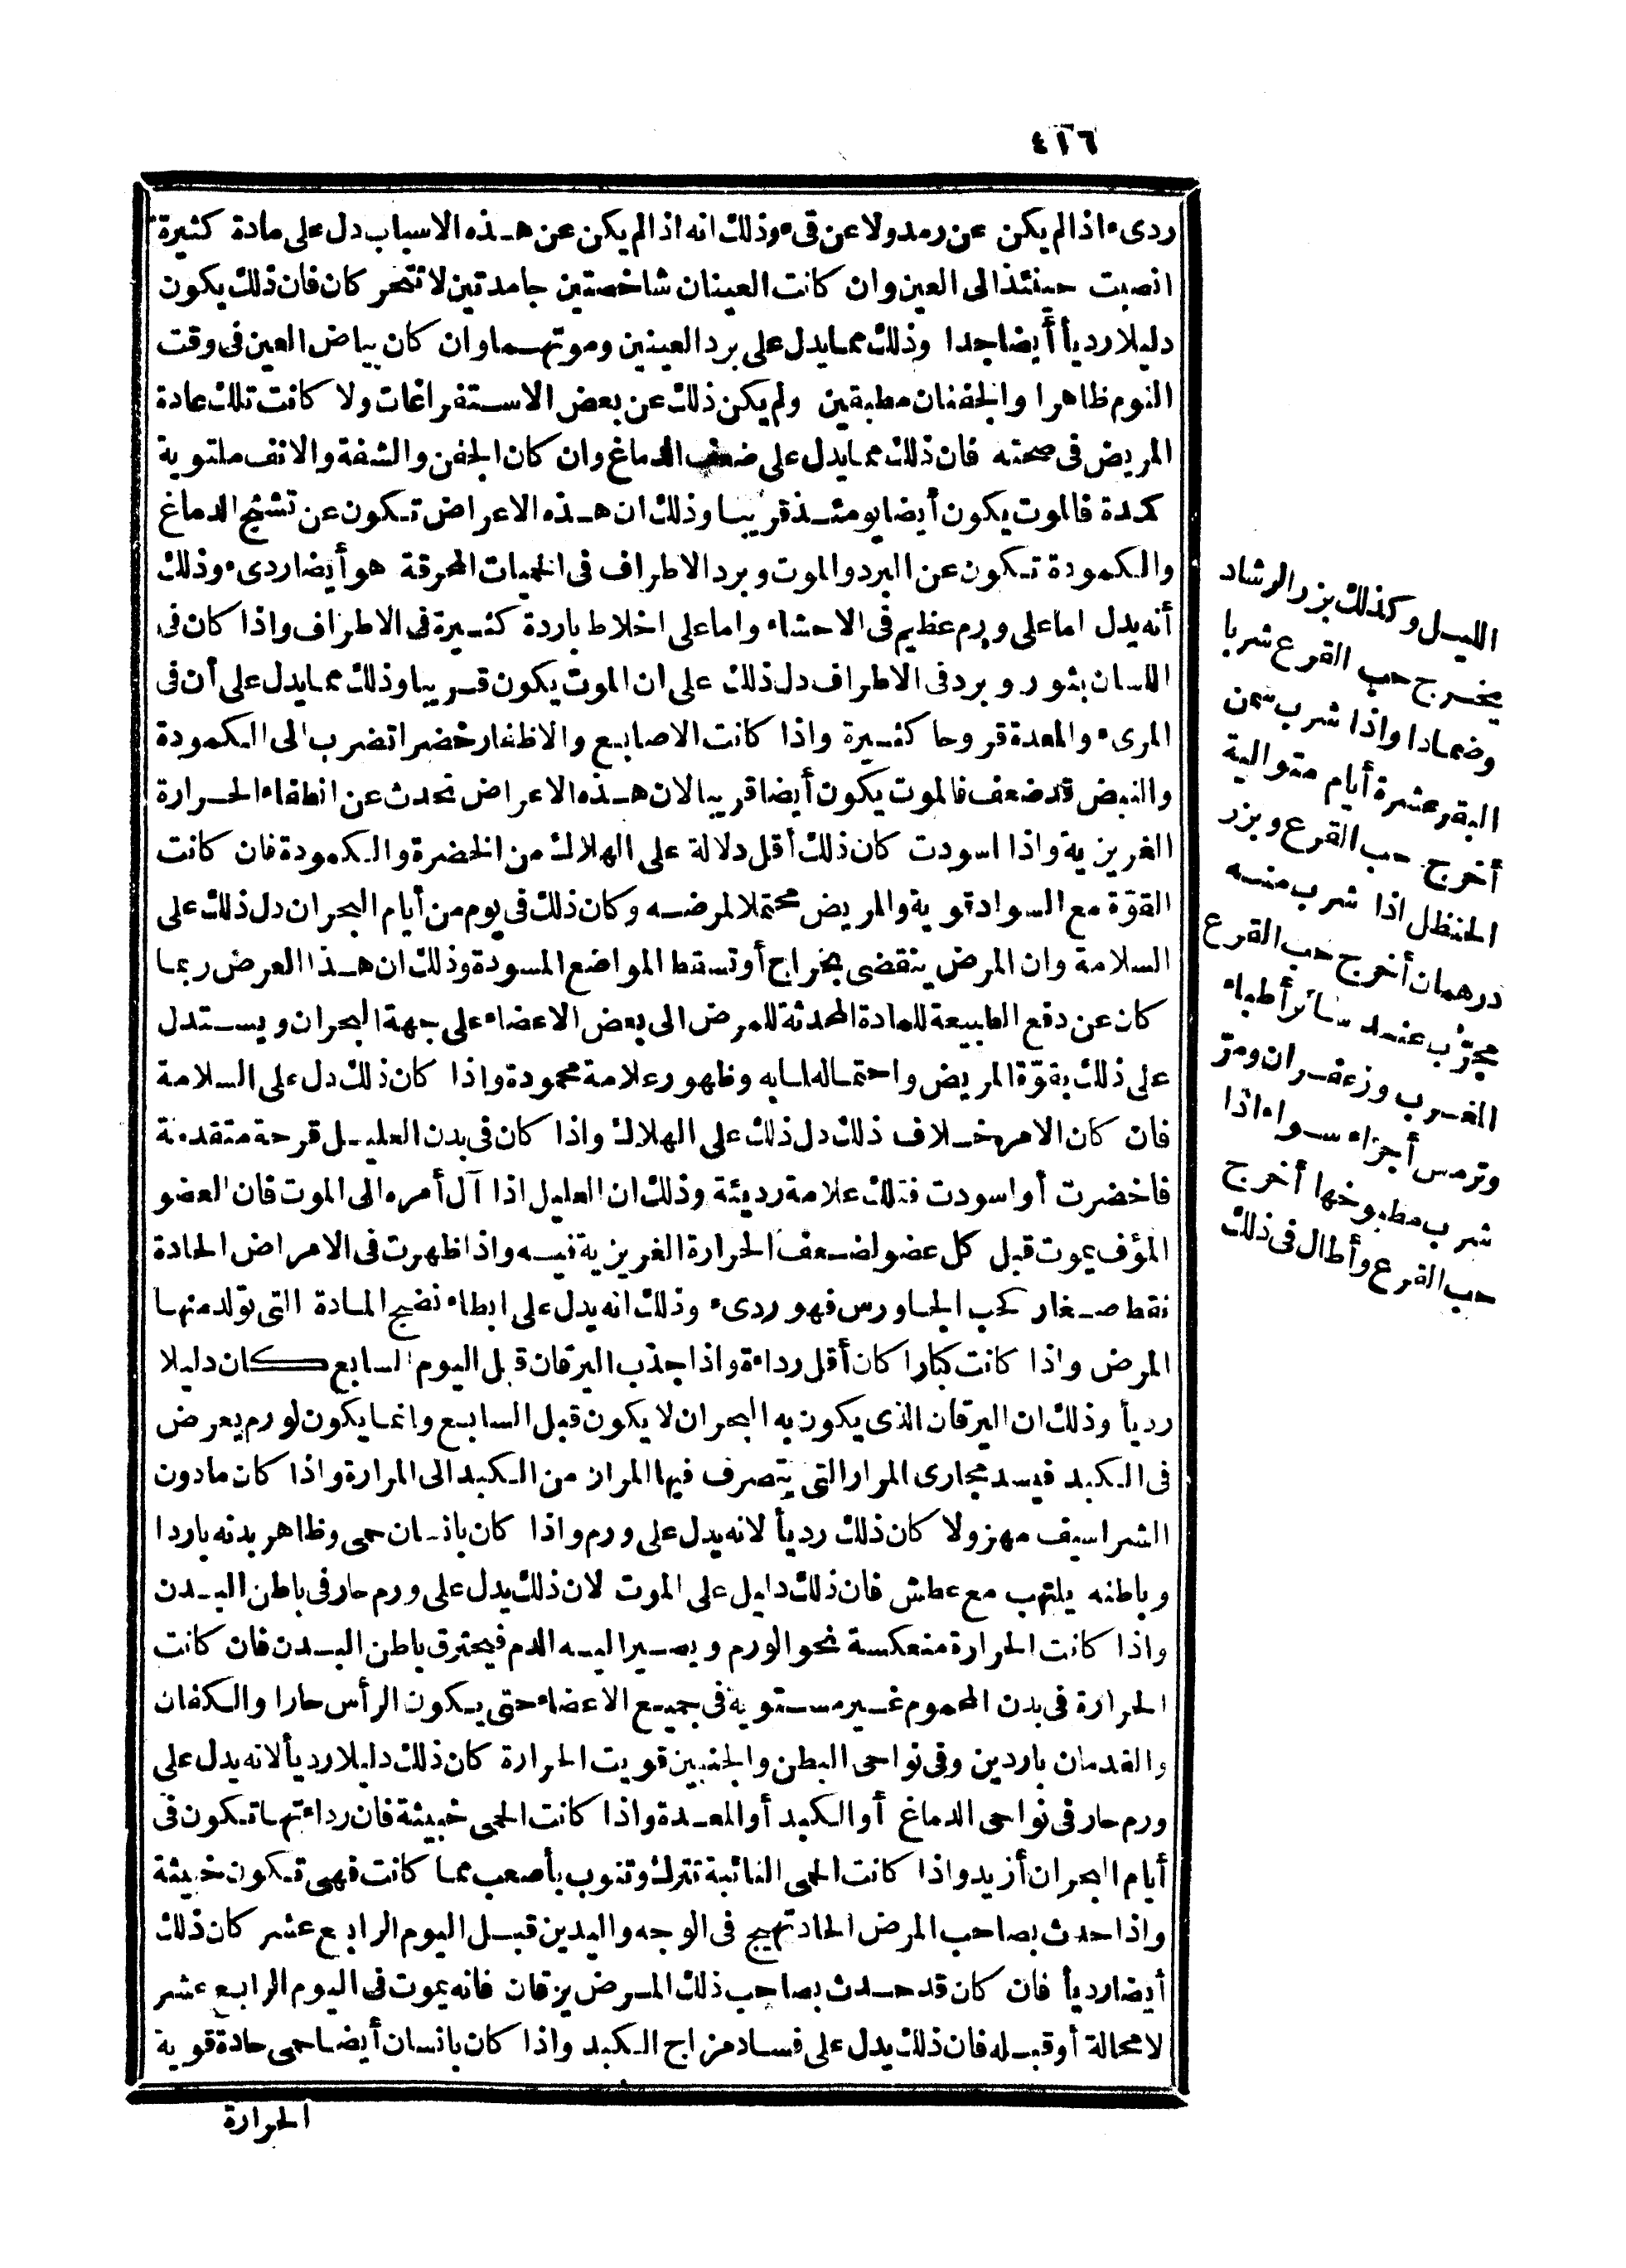 ٤١٦
ردىء اذا لم يكن عن رمد ولا عن قىء وذلك انه اذا لم يكن عن هـذه الاسباب دل على مادة كثيرة
انصبت حينئذ الى العين وان كانت العينان شاخصتين جامدتين لا تتحركان فان ذلك يكون
دليلا رديأ أيضا جدا وذلك مما يدل على برد العينين وموتهـما وان كان بياض العين فى وقت
النوم ظاهرا والجفنان مطبقين ولم يكن ذلك عن بعض الاستفراغات ولا كانت تلك عادة
المريض فى صحته فان ذلك مما يدل على ضعف الدماغ وان كان الجفن والشفة والانف ملتوية
كمدة فالموت يكون أيضا يومئـذ قريبا وذلك ان هـذه الاعراض تـكون عن تشنج الدماغ
والـكمودة تـكون عن البرد والموت وبرد الاطراف فى الحميات المحرقة هو أيضا ردىء وذلك
أنه يدل اما على ورم عظيم فى الاحشاء واما على اخلاط باردة كثيرة فى الاطراف واذا كان فى
اللسان بثور وبرد فى الاطراف دل ذلك على ان الموت يكون قـريبا وذلك مما يدل على أن فى
المرىء والمعدة قروحا كثيرة واذا كانت الاصابع والاظفار خضرا تضرب الى الـكمودة
والنبض قد ضعف فالموت يكون أيضا قريبا لان هـذه الاعراض تحدث عن انطفاء الحـرارة
الغريزية واذا اسودت كان ذلك أقل دلالة على الهلاك من الخضرة والـكمودة فان كانت
القوّة مع السواد قوية والمريض محتملا لمرضـه وكان ذلك فى يوم من أيام البحران دل ذلك على
السلامة وان المرض ينقضى بخراج أو تسقط المواضع المسودة وذلك ان هـذا العرض ربما
كان عن دفع الطبيعة للمادة المحدثة للمرض الى بعض الاعضاء على جهة البحران ويسـتدل
على ذلك بقوّة المريض واحتماله لمابه وظهور علامة محمودة واذا كان ذلك دل على السلامة
فان كان الامر بخـلاف ذلك دل ذلك على الهلاك واذا كان فى بدن العليـل قرحة متقدمة
فاخضرت أو اسودت فتلك علامة رديئة وذلك ان العليل اذا آل أمره الى الموت فان العضو
المؤف يموت قبل كل عضو لضـعف الحرارة الغريزية فيـه واذا ظهرت فى الامراض الحادة
نقط صـغار كحب الجاورس فهو ردىء وذلك انه يدل على ابطاء نضج المادة التى تولد منها
المرض واذا كانت كبارا كان أقل رداءة واذا جذب اليرقان قبل اليوم السابع كان دليلا
رديأ وذلك ان اليرقان الذى يكون به البحران لا يكون قبل السابع وانما يكون لورم يعرض
فى الـكبد فيسد مجارى المرار التى يتصرف فيها المرار من الـكبد الى المرارة واذا كان مادون
الشراسيف مهزولا كان ذلك رديأ لانه يدل على ورم واذا كان بانسان حمى وظاهر بدنه باردا
وباطنه يلتهب مع عطش فان ذلك دليل على الموت لان ذلك يدل على ورم حار فى باطن البـدن
واذا كانت الحرارة منعكسة نحو الورم ويصـير اليـه الدم فيحترق باطن البـدن فان كانت
الحرارة فى بدن المحموم غـير مسـتوية فى جميـع الاعضاء حتى يـكون الرأس حارا والـكفان
والقدمان باردين وفى نواحى البطن والجنبين قويت الحرارة كان ذلك دليلا رديأ لانه يدل على
ورم حار فى نواحى الدماغ أو الـكبد أو المعـدة واذا كانت الحمى خبيثة فان رداءتها تـكون فى
أيام البحران أزيد واذا كانت الحمى النائبة تترك وتنوب بأصعب مما كانت فهى تـكون خبيثة
واذا حدث بصاحب المرض الحاد تهيج فى الوجه واليدين قبـل اليوم الرابع عشر كان ذلك
أيضا رديأ فان كان قد حـدث بصاحب ذلك المـرض يرقان فانه يموت فى اليوم الرابع عشر
لا محالة أو قبـله فان ذلك يدل على فسـاد مزاج الـكبد واذا كان بانسان أيضا حمى حادة قوية
الحرارة
الليـل وكذلك بزر الرشاد
يخـرج حب القرع شربا
وضمادا واذا شرب سمن
البقر عشرة أيام متوالية
أخرج حب القرع وبزر
الحنظل اذا شرب منـه
درهمان أخرج حب القرع
مجرّب عنـد سائر أطباء
الغـرب وزعفـران ومرّ
وترمس أجزاء سـواء اذا
شرب مطبوخها أخرج
حب القرع وأطال فى ذلك